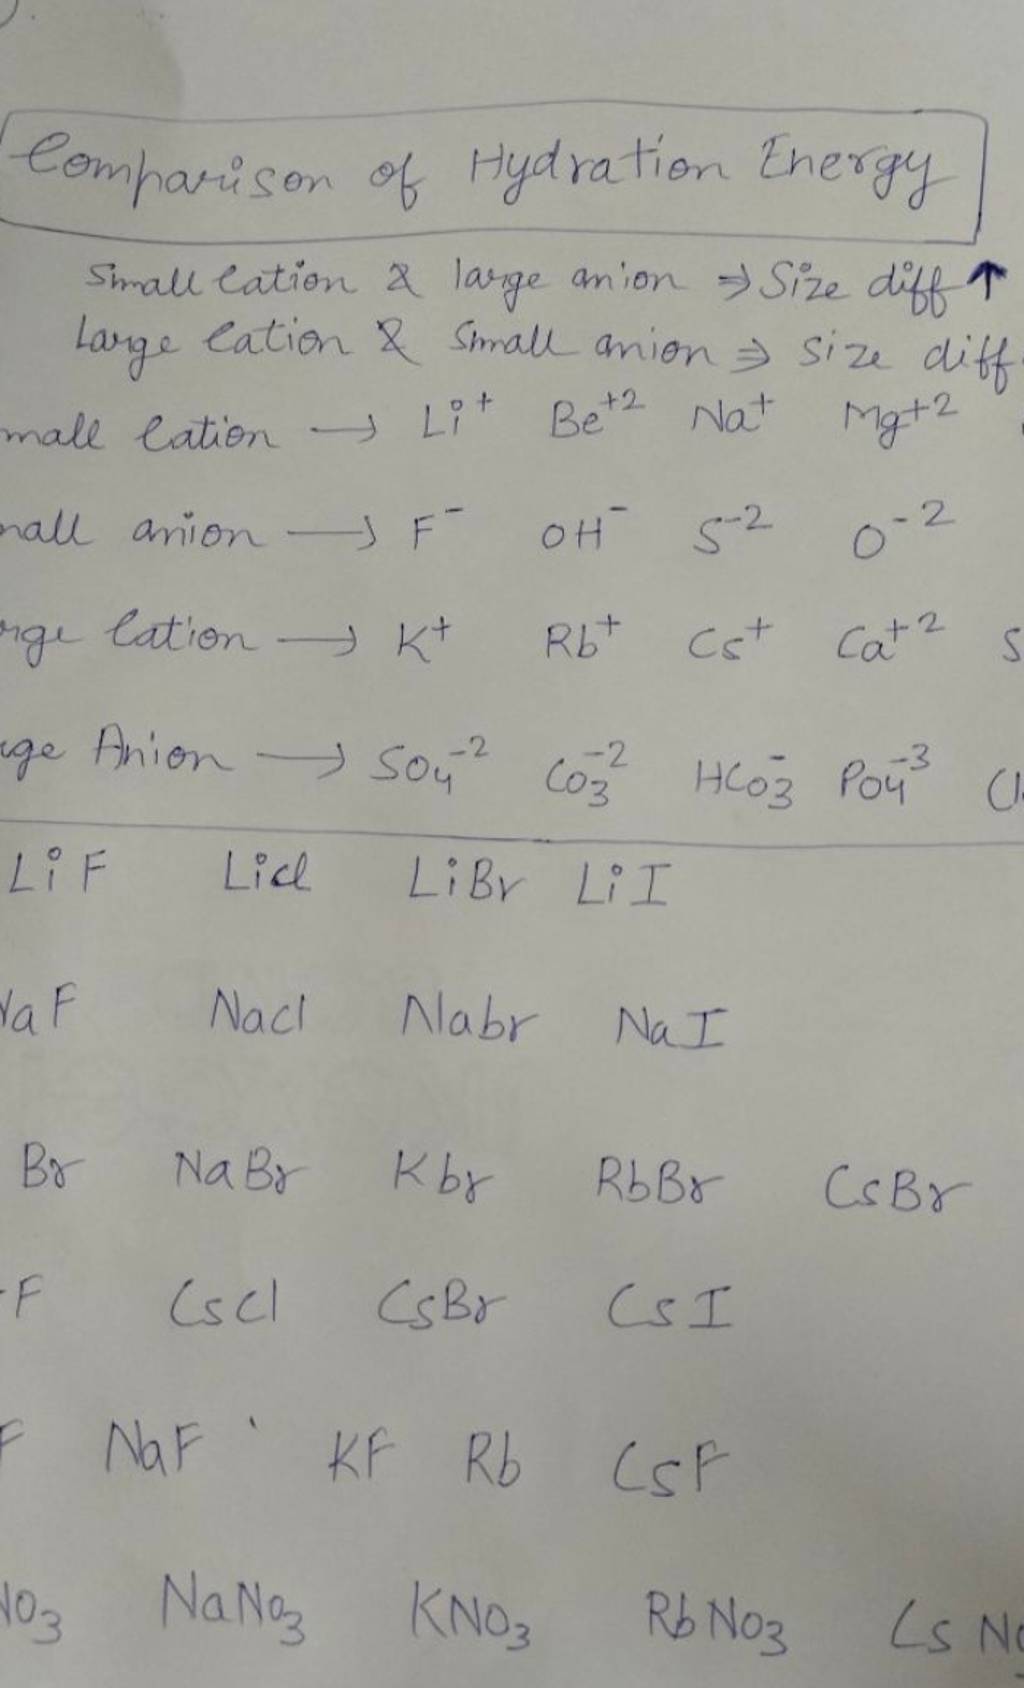 Comparison of Hydration Energy
Small Cation & large anion ⇒ Size diff ↑
Large Cation & Small anion ⇒ Size diff
mall Cation → Li⁺ Be⁺² Na⁺ Mg⁺²
mall anion → F⁻ OH⁻ S⁻² O⁻²
rge Cation → K⁺ Rb⁺ Cs⁺ Ca⁺² S
rge Anion → SO₄⁻² CO₃⁻² HCO₃⁻ PO₄⁻³ Cl
LiF LiCl LiBr LiI
NaF NaCl Nabr NaI
Br NaBr Kbr RbBr CsBr
F CsCl CsBr CsI
F NaF KF Rb CsF
NO₃ NaNO₃ KNO₃ RbNO₃ CsNO